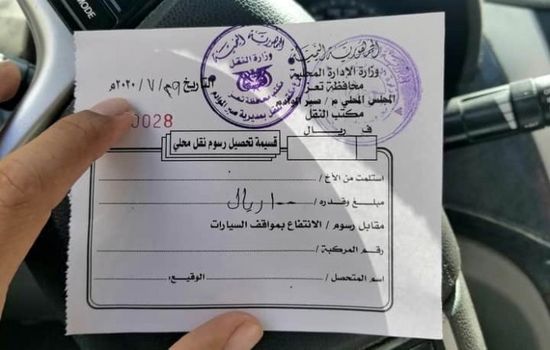 MODE
الجمهورية اليمنية
وزارة الإدارة المحلية
محافظة تعز
المجلس المحلي م / صبر الموادم
مكتب النقل
الجمهورية اليمنية
وزارة النقل
التاريخ ٢٩/٧/٢٠٢٠م
0028
ف ريال
قسيمة تحصيل رسوم نقل محلي
استلمت من الأخ /
مبلغ وقدره / ١٠٠ ريال
مقابل رسوم / الانتفاع بمواقف السيارات
رقم المركبة /
اسم المتحصل / الوقيع /